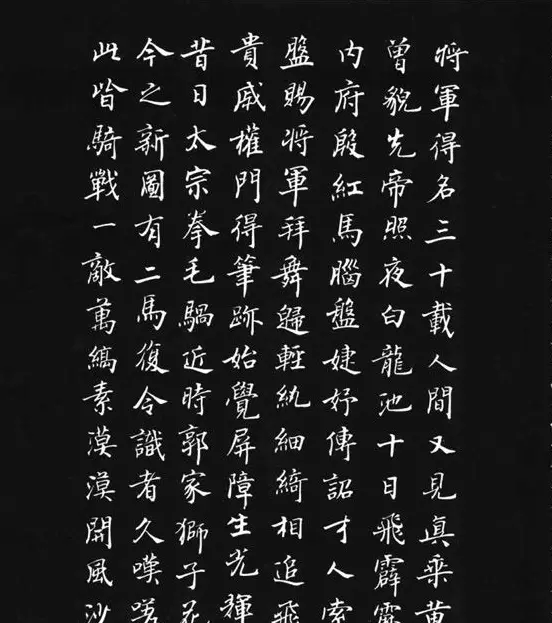 將軍得名三十載人間又見真乘黃
曾貌先帝照夜白龍池十日飛霹靂
內府殷紅馬腦盤婕妤傳詔才人索
盤賜將軍拜舞歸輕紈細綺相追飛
貴戚權門得筆跡始覺屏障生光輝
昔日太宗拳毛騧近時郭家獅子花
今之新圖有二馬復令識者久嘆嗟
此皆騎戰一敵萬縞素漠漠開風沙